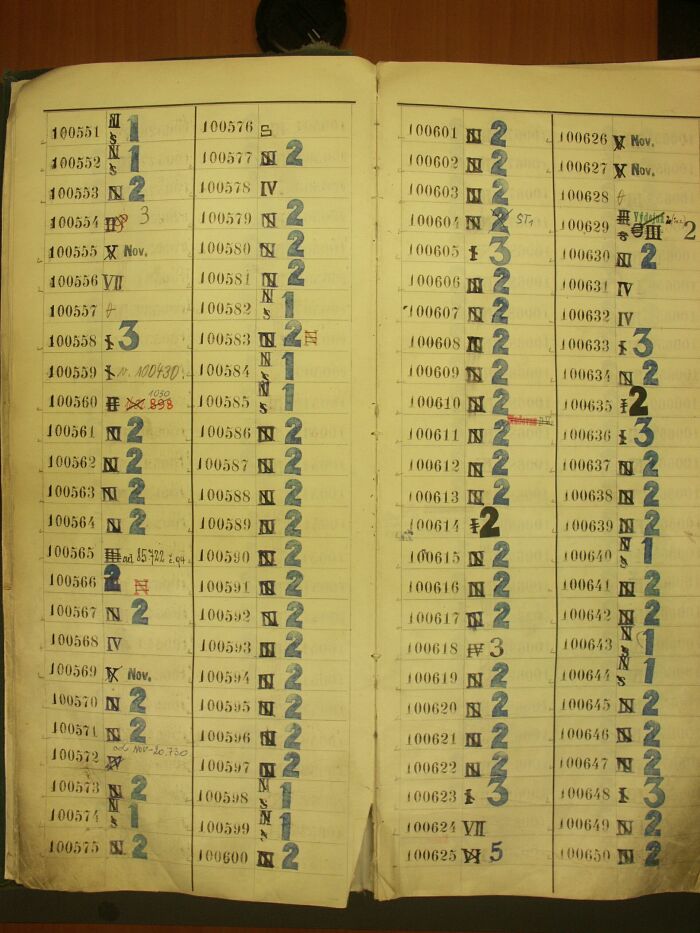 100551 N s 1
100552 N s 1
100553 N 2
100554 3
100555 V Nov.
100556 VII
100557
100558 I 3
100559 I 100430
100560 II 1030 898
100561 N 2
100562 N 2
100563 N 2
100564 N 2
100565 III od 85.722
100566 2 N
100567 N 2
100568 IV
100569 V Nov.
100570 N 2
100571 N 2
100572 Nov-20.730
100573 N 2
100574 N s 1
100575 N 2
100576
100577 N 2
100578 IV
100579 N 2
100580 N 2
100581 N 2
100582 N s 1
100583 N 2 N
100584 N s 1
100585 N s 1
100586 N 2
100587 N 2
100588 N 2
100589 N 2
100590 N 2
100591 N 2
100592 N 2
100593 N 2
100594 N 2
100595 N 2
100596 N 2
100597 N 2
100598 N s 1
100599 N s 1
100600 N 2
100601 N 2
100602 N 2
100603 N 2
100604 N 2 ST1
100605 I 3
100606 N 2
100607 N 2
100608 N 2
100609 N 2
100610 N 2
100611 N 2
100612 N 2
100613 N 2
100614 I 2
100615 N 2
100616 N 2
100617 N 2
100618 IV 3
100619 N 2
100620 N 2
100621 N 2
100622 N 2
100623 I 3
100624 VII
100625 VI 5
100626 V Nov.
100627 V Nov.
100628
100629 III s III 2
100630 N 2
100631 IV
100632 IV
100633 I 3
100634 N 2
100635 I 2
100636 I 3
100637 N 2
100638 N 2
100639 N 2
100640 N s 1
100641 N 2
100642 N 2
100643 N s 1
100644 N s 1
100645 N 2
100646 N 2
100647 N 2
100648 I 3
100649 N 2
100650 N 2